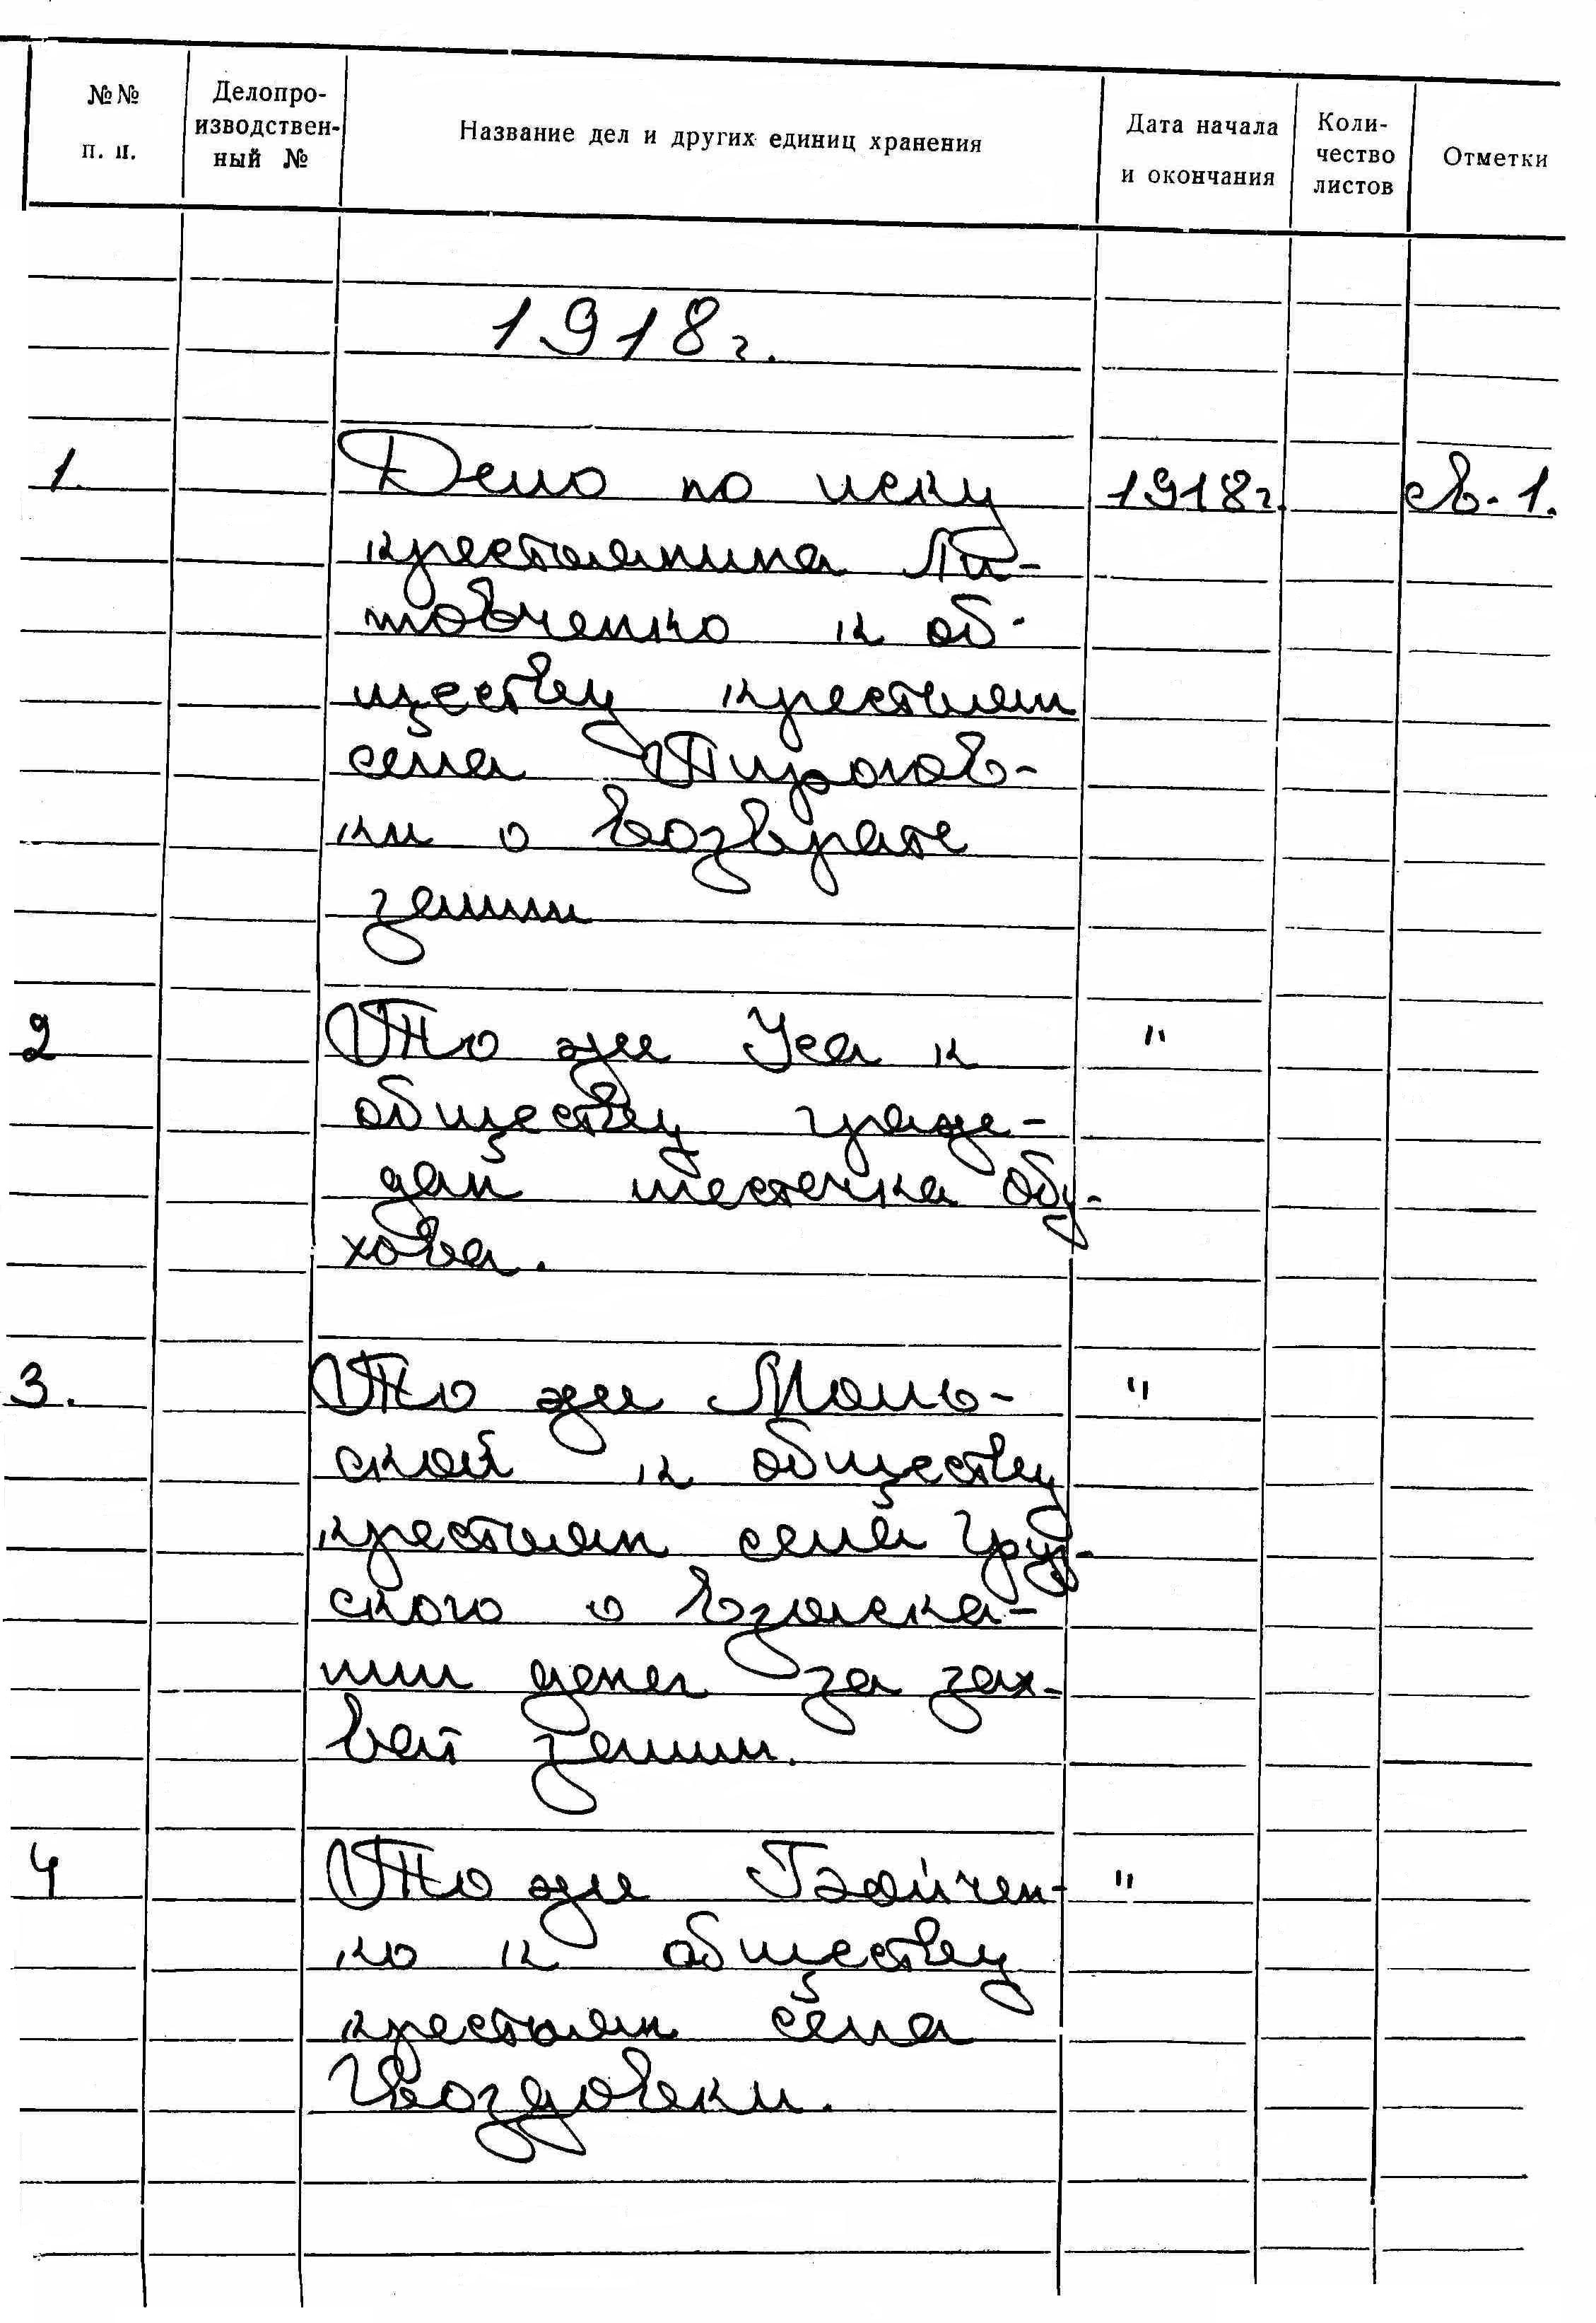 №№ п. п.
Делопро-
изводствен-
ный №
Название дел и других единиц хранения
Дата начала
и окончания
Коли-
чество
листов
Отметки
1918г.
1. Дело по иску 1918г. св. 1.
крестьянина Ли-
товченко к об-
ществу крестьян
села Пирогов-
ки о возврате
земли
2 То же Уса к "
обществу граж-
дан местечка Обу-
хова.
3. То же Моль-
ской к обществу "
крестьян села Груз-
ского о взыска-
нии денег за зах-
ват земли.
4 То же Бойчен- "
ко к обществу
крестьян села
Гвоздовки.